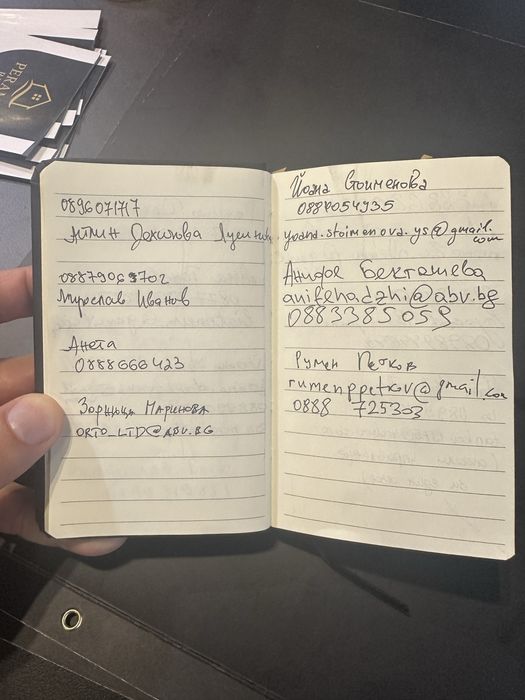 PERAL
0896071717
0887906702
Мирослав Иванов
Анета
0888666423
Зорница Маринова
ORTO_LTD@ABV.BG
Йоана Стоименова
0887054935
yoana.stoimenova.ys@gmail.
com
Бекташева
anifehadzhi@abv.bg
0883385059
Румен Петков
rumenppetkov@gmail.com
0888 725303